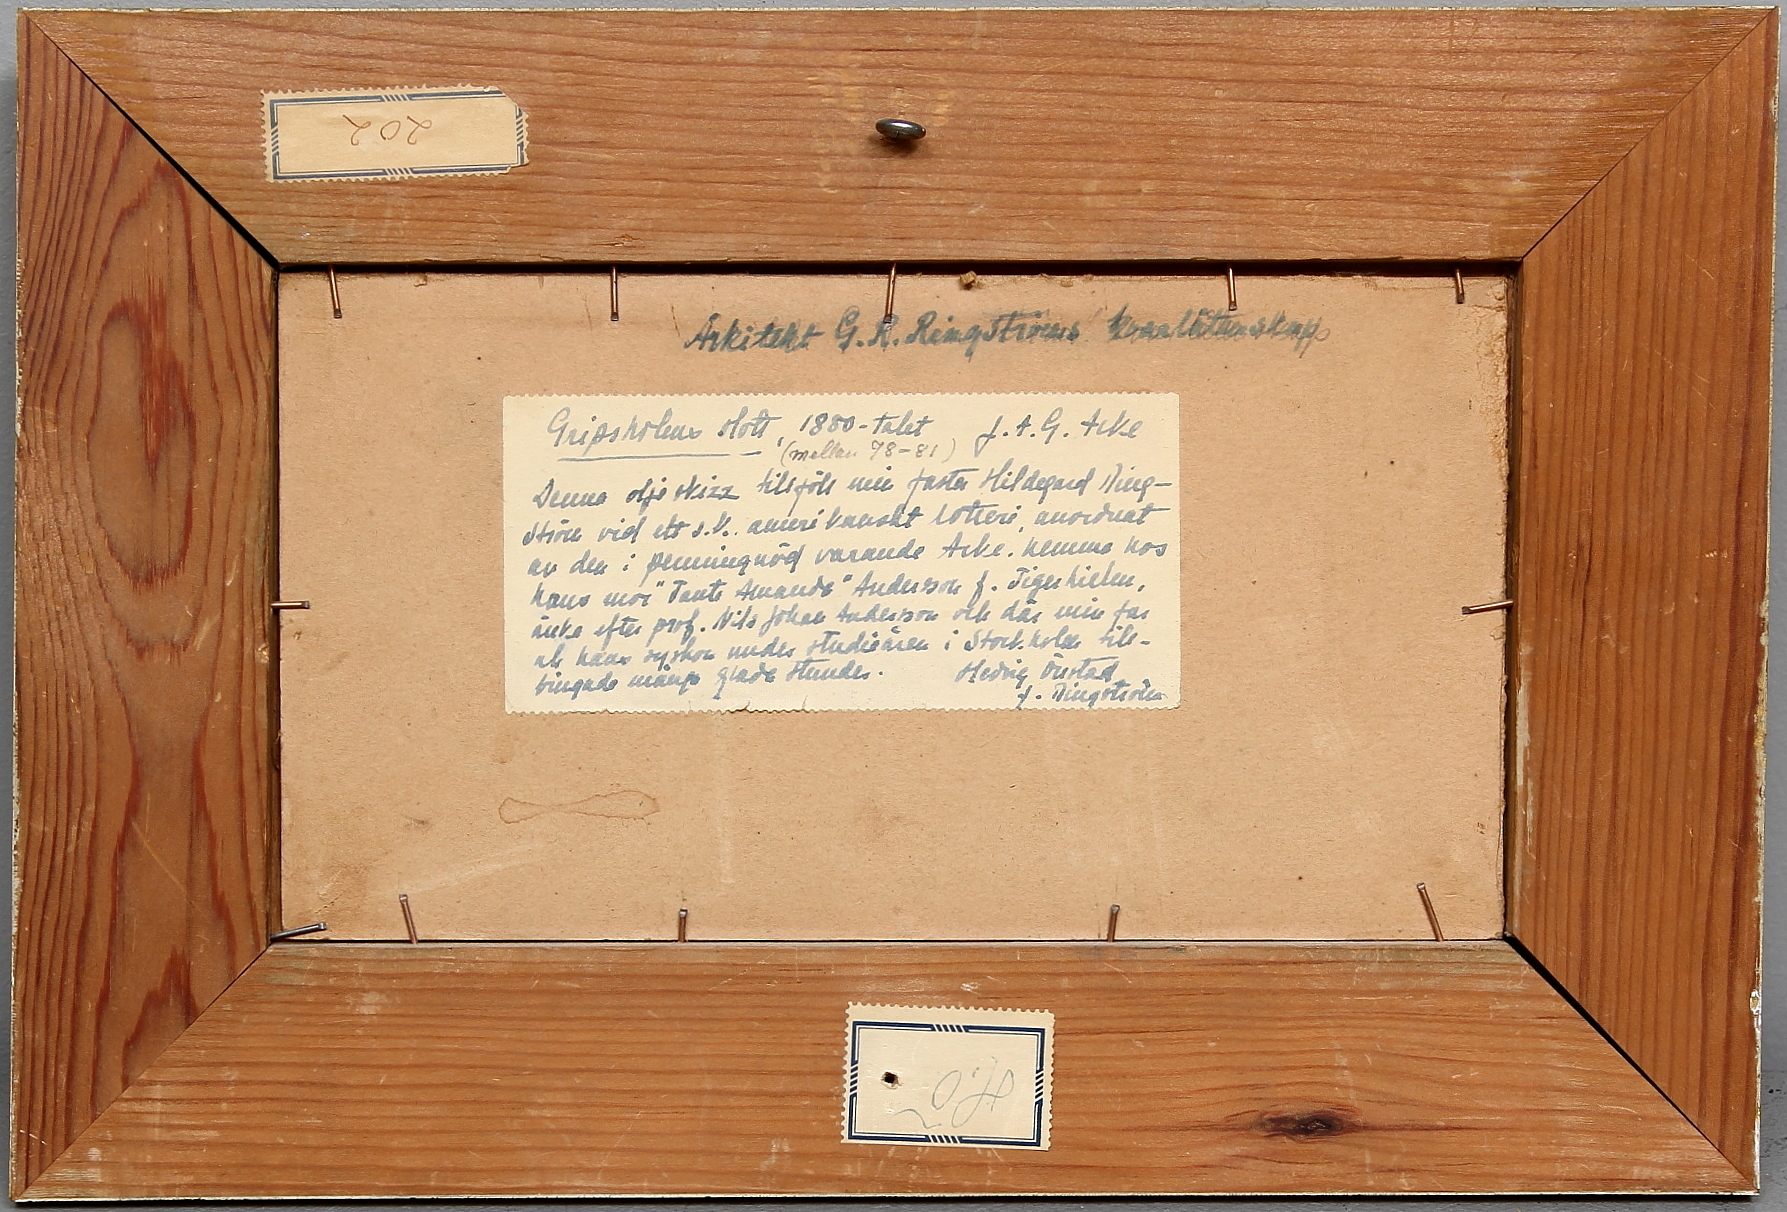 202
Arkitekt G. R. Ringströms kvarlåtenskap
Gripsholms slott, 1880-talet J. A. G. Acke
(mellan 78-81)
Denna oljeskizz tillföll min faster Hildegard Ring-
ström vid ett s.k. amerikanskt lotteri, anordnat
av den i penningnöd varande Acke. hemma hos
hans mor "Tante Amanda" Andersson f. Tigerhielm,
änka efter prof. Nils Johan Andersson och där min far
och hans syskon under studieåren i Stockholm till-
bringade många glada stunder. Hedvig
f. Ringström